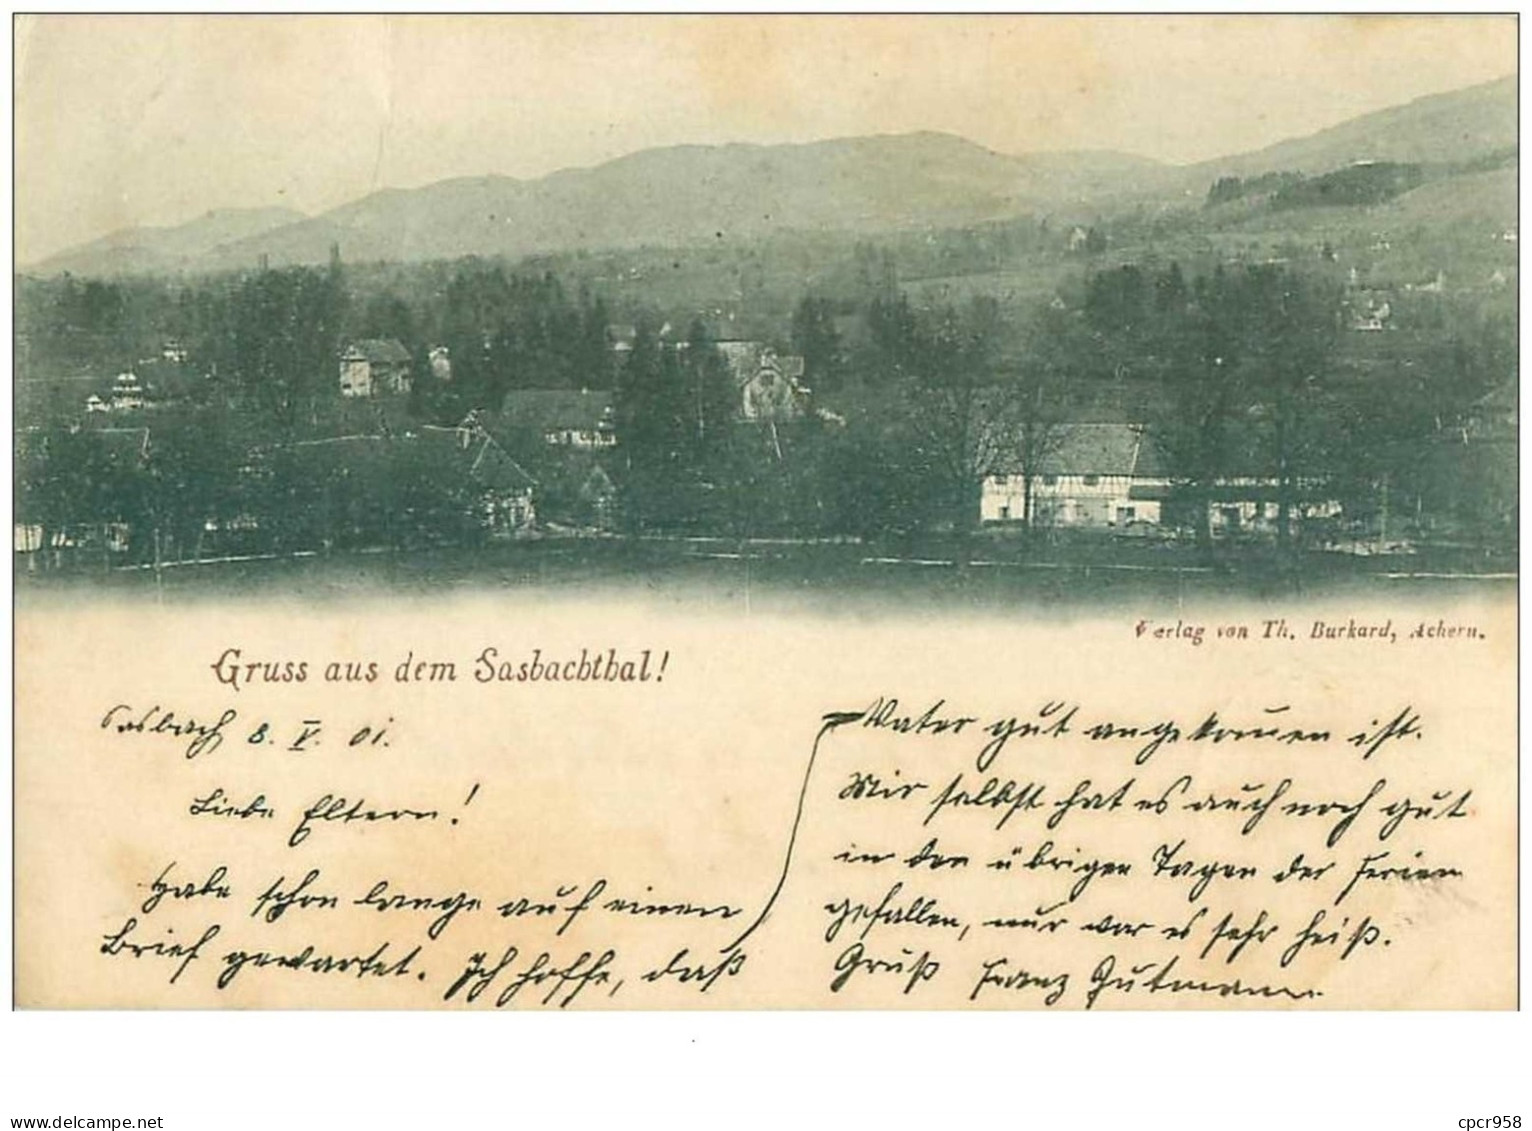 Verlag von Th. Burkard, Achern.
Gruss aus dem Sasbachthal!
Sasbach 8. V. 01.
Liebe Eltern!
Habe schon lange auf einen
Brief gewartet. Ich hoffe, daß
Vater gut angekommen ist.
Mir selbst hat es auch noch gut
in den übrigen Tagen der Ferien
gefallen, nur war es sehr heiß.
Gruß Franz Gutmann
delcampe.net
cpcr958